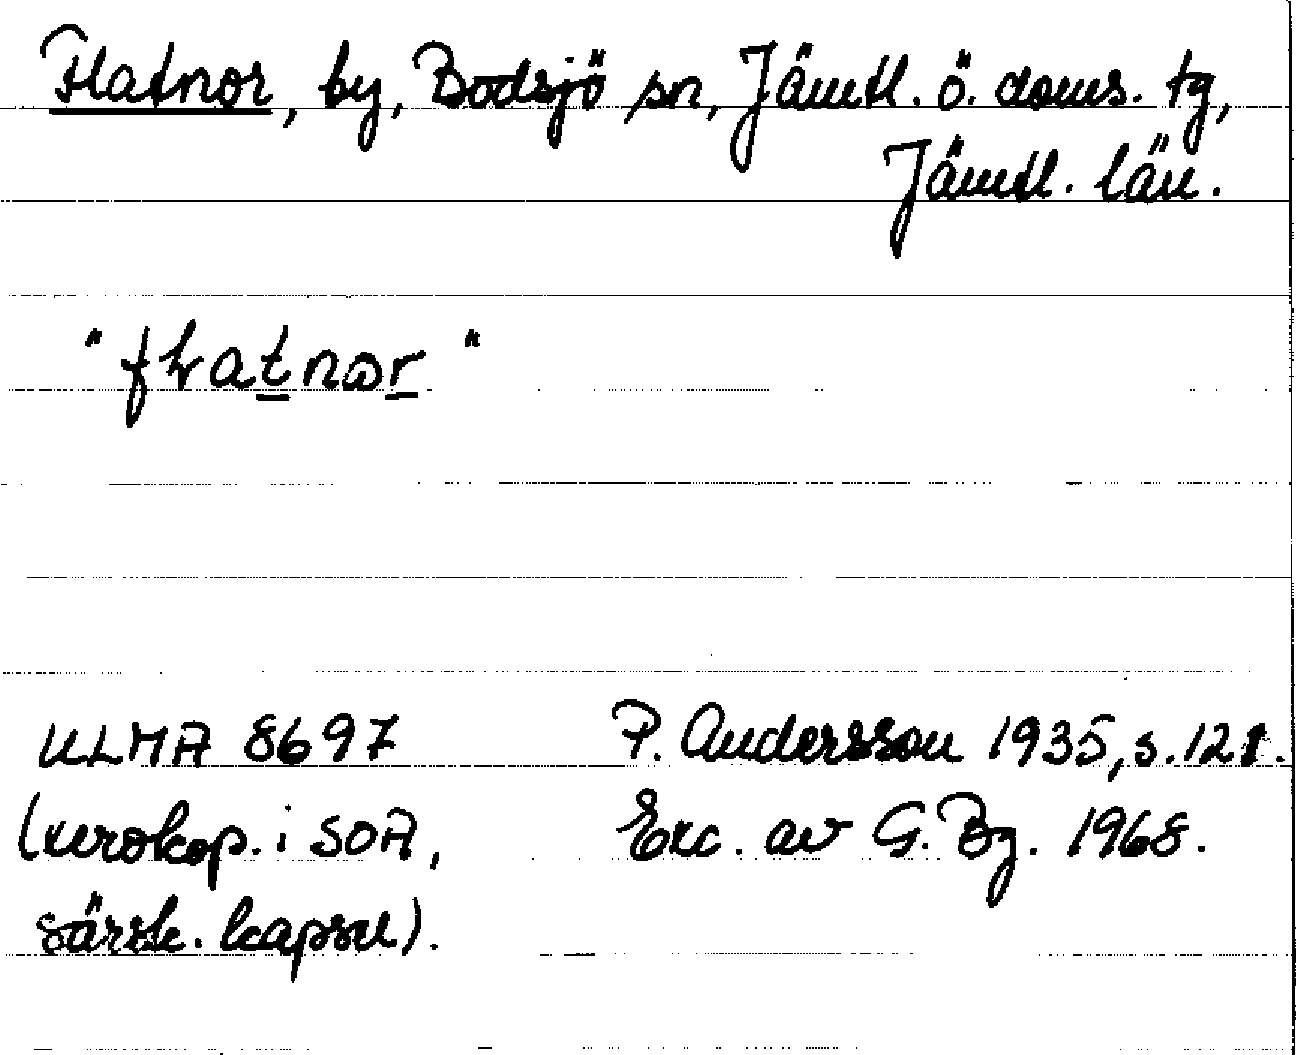 Flatnor, by, Bodsjö sn, Jämtl. ö. doms. tg,
Jämtl. län.
"flatnor"
ULMA 8697 P. Andersson 1935, s. 128.
(xerokop. i SOA, Exc. av G. Bg. 1968.
särsk. kapsel).